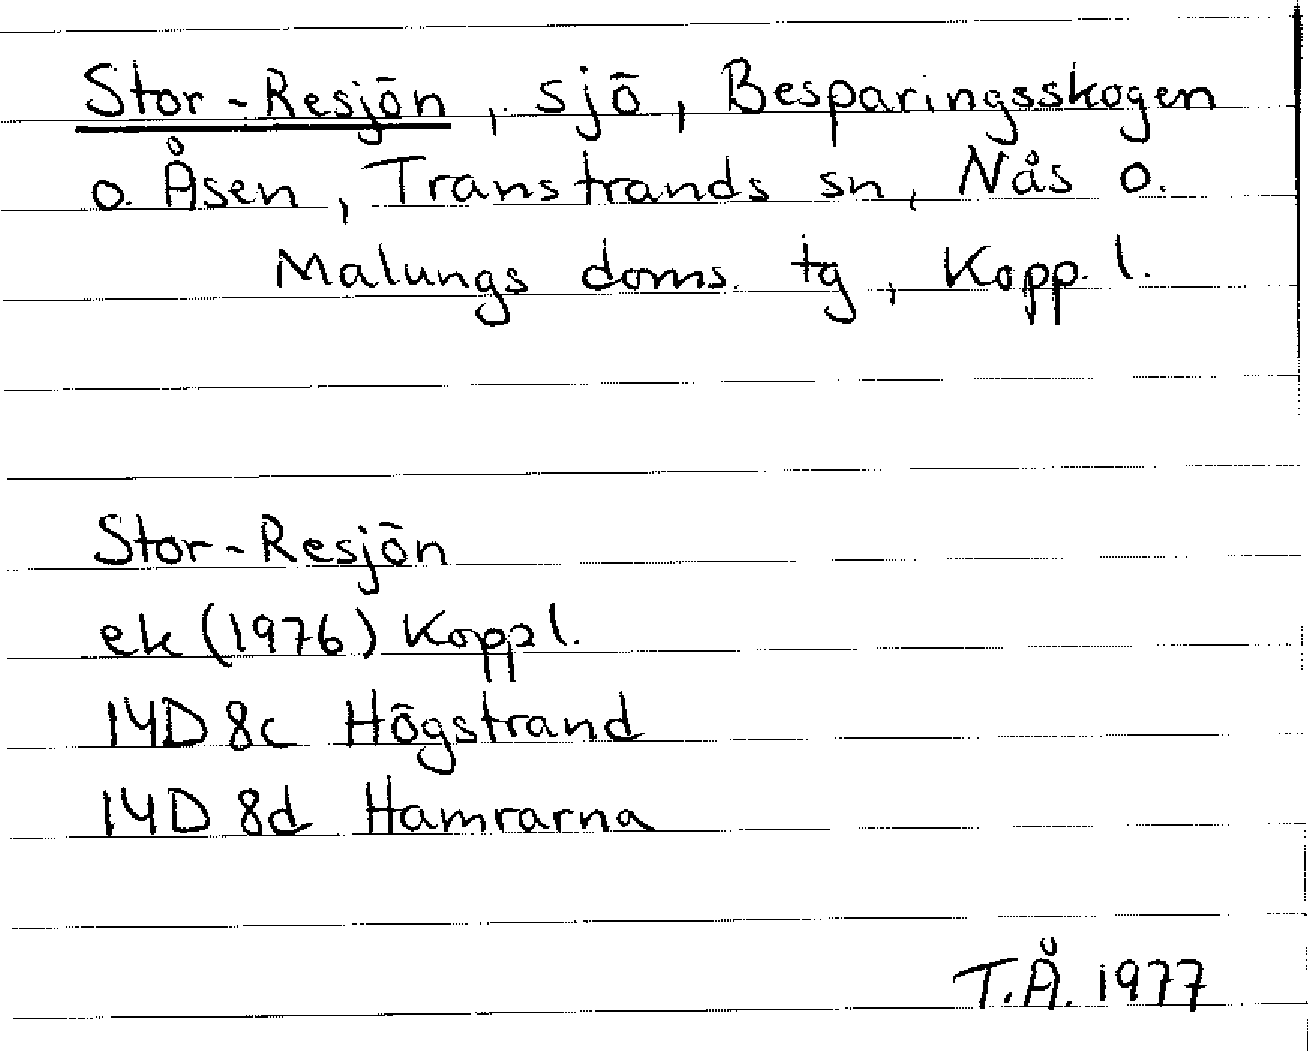 Stor-Resjön, sjö, Besparingsskogen
o. Åsen, Transtrands sn, Nås o.
Malungs doms. tg, Kopp. l.
Stor-Resjön
ek (1976) Koppl.
14D 8c Högstrand
14D 8d Hamrarna
T.Å. 1977